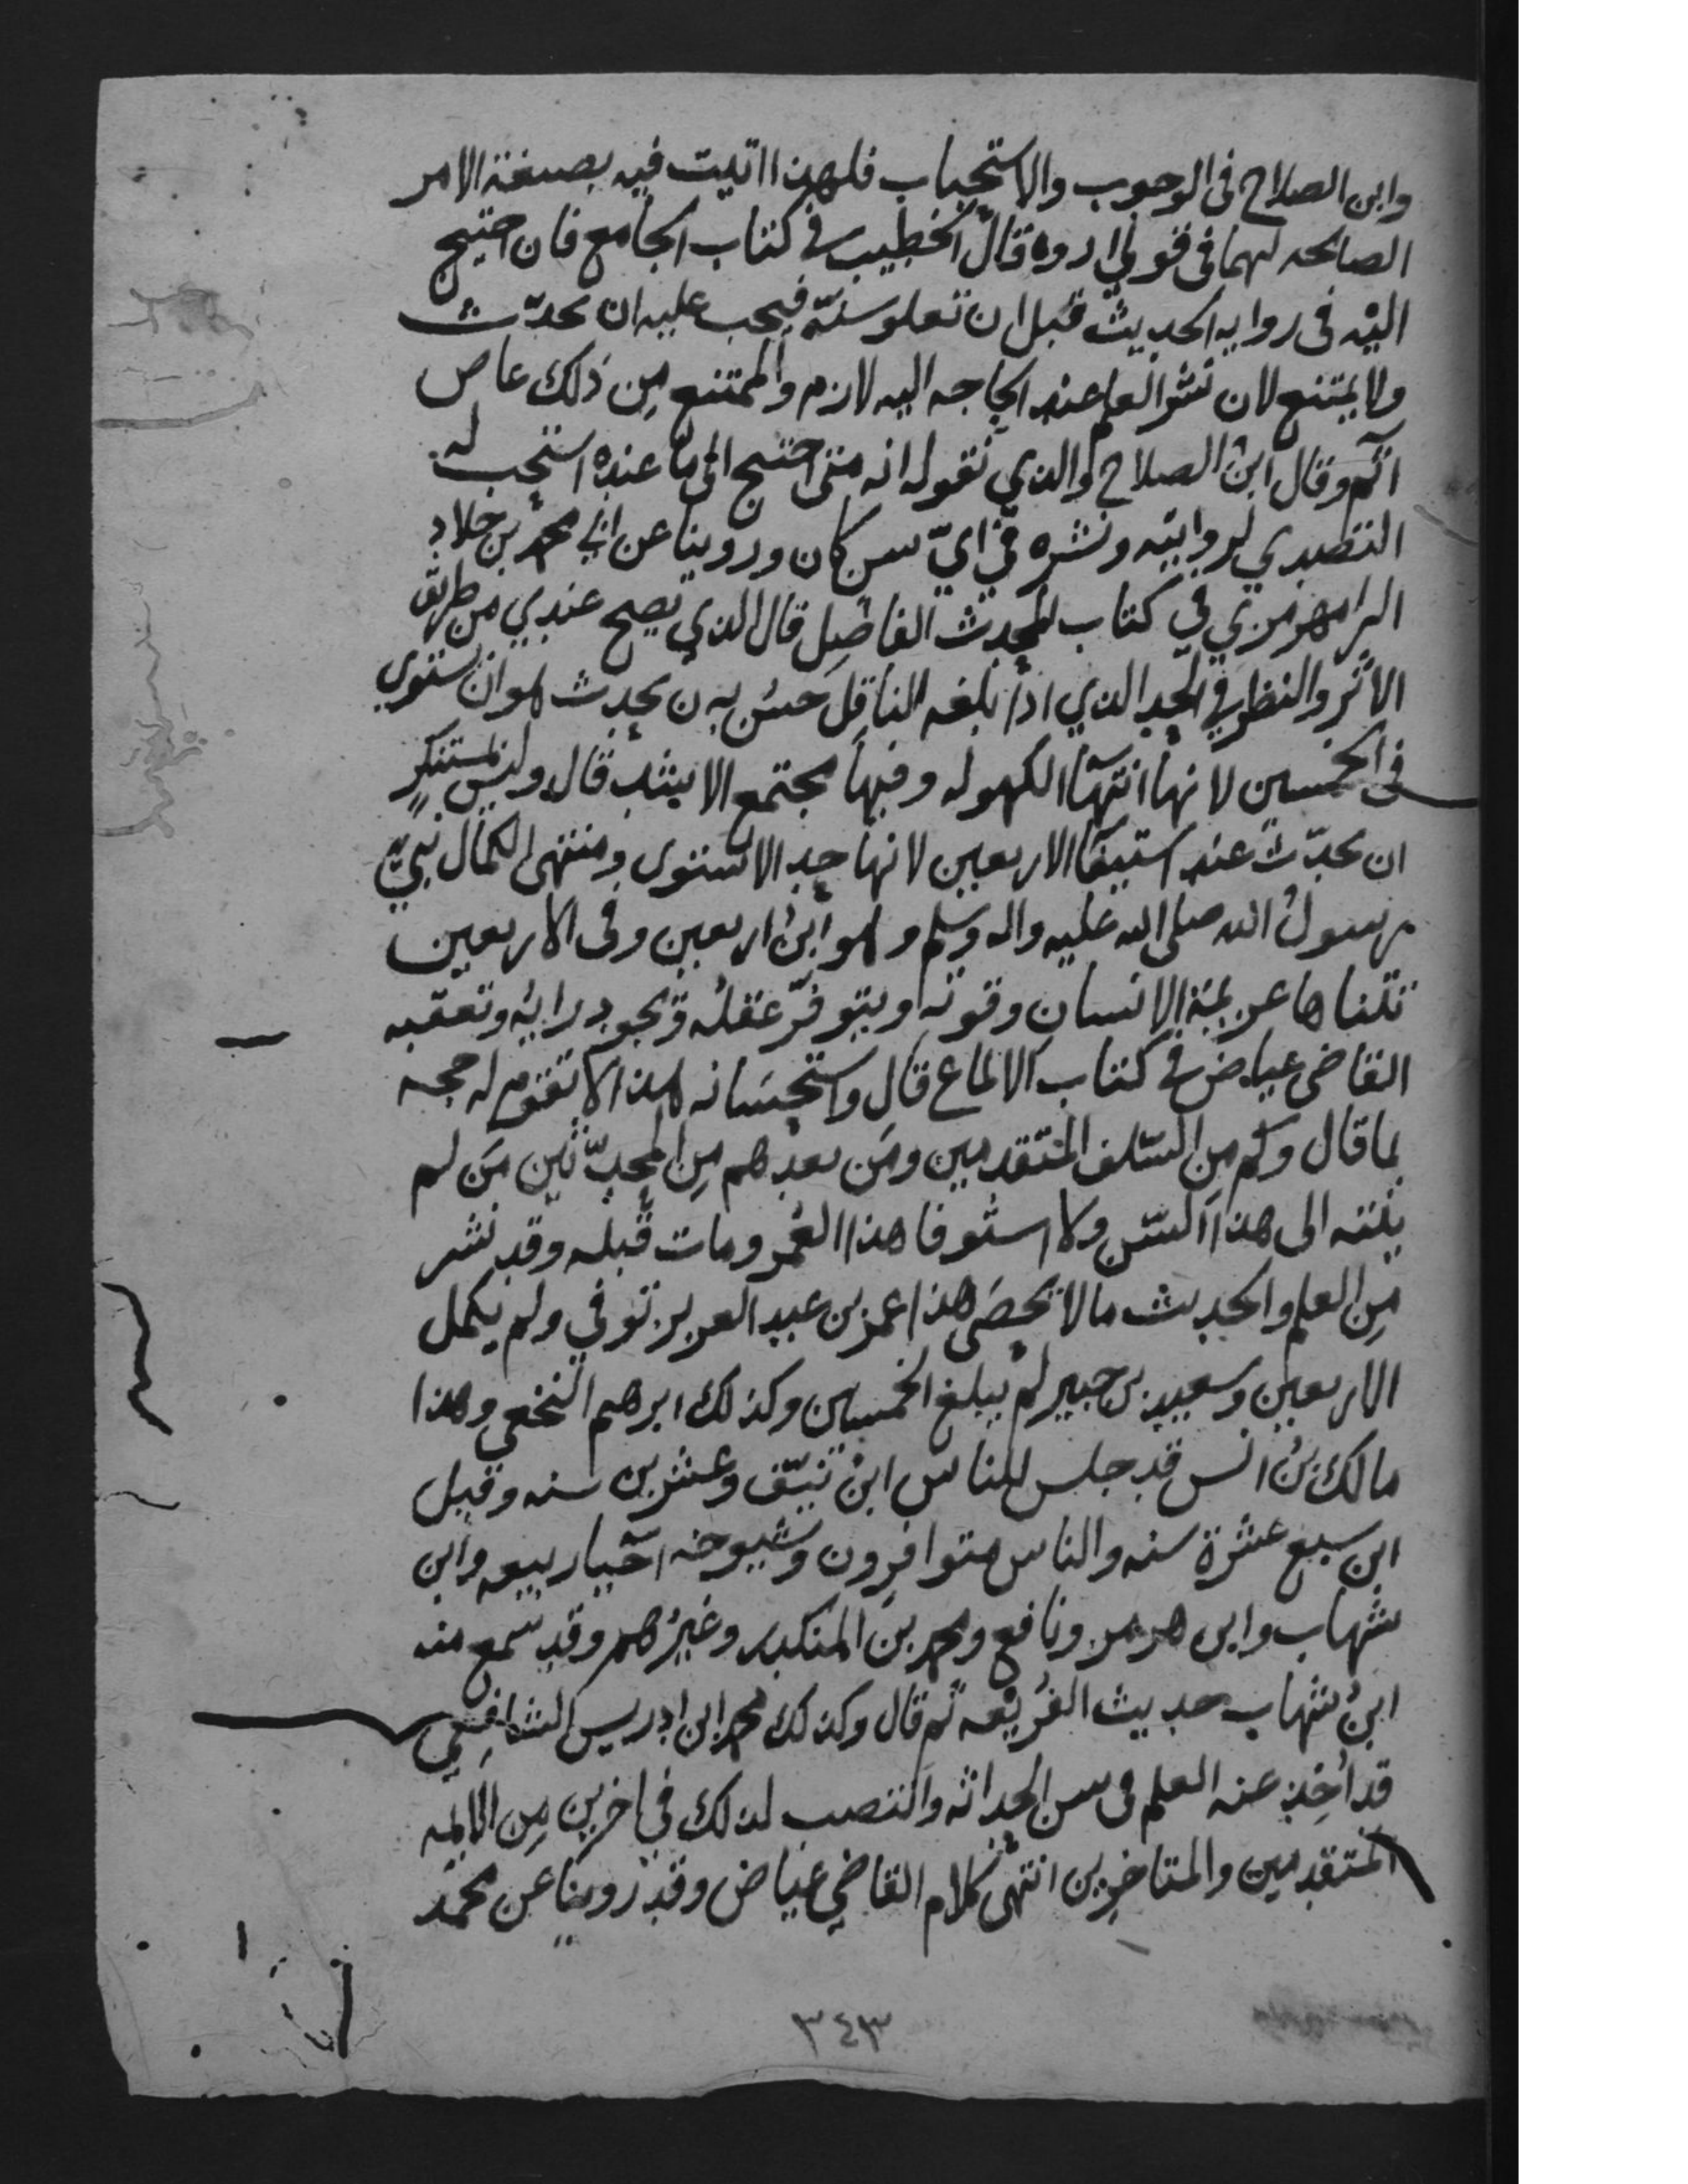 وابن الصلاح في الوجوب والاستحباب فلهذا اتيت فيه بصيغة الامر
الصالحه لهما في قولي اروه قال الخطيب في كتاب الجامع فان احتيج
اليه في روايه الحديث قبل ان تعلو سنّه فيجب عليه ان يحدّث
ولا يمتنع لان نشر العلم عند الحاجه اليه لازم والممتنع مِن ذلك عاص
آثم وقال ابن الصلاح والذي نقوله انه متى احتيج الى ما عنده استحب له
التصدي لروايته ونشره في ايّ سن كان وروينا عن ابي محمد بن خلاد
الرامهرمزي في كتاب المحدث الفاصِل قال الذي يصح عندي من طريق
الاثر والنظر في الحد الذي اذا بلغه الناقِل حسُن به ن يحدث هو ان يستوي
في الخمسين لانها انتهآ الكهوله وفيها مجتمع الاشد قال وليس بمستنكرٍ
ان يحدّث عند استيفآ الاربعين لانها حد الاستوى ومنتهى الكمال نبيّ
رسولُ الله صلى الله عليه واله وسلم وهو ابنُ اربعين وفي الاربعين
تتناها عزيمة الانسانِ وقوته ويتوفّر عقله ويجود رايه وتعقبه
القاضي عياض في كتاب الالماع قال واستحسَانه هذا لا تقوم له حجه
بما قال وكم مِن السّلف المتقدمين ومَن بعدهم مِن المحدّثين مَن لم
ينته الى هذا السّن ولا استوفا هذا العُمر ومات قبله وقد نشر
مِن العلم والحديث ما لا يحصَى هذا عمر بن عبد العزيز توفي ولم يكمل
الاربعين وسعيد بن جبير لم يبلغ الخمسين وكذلك ابرهيم النخعي وهذا
مالك بنُ انس قد جلس للناس ابن نيّف وعشرين سنه وقيل
ابن سبع عشرة سنه والناس متوافرون وشيوخه احيآ ربيعه وابن
شهاب وابن هرمز ونافع ومحمد بن المنكدر وغيرُهم وقد سمع منه
ابنُ شهاب حديث الفُريْعه ثم قال وكذلك محمد ابن ادريس الشافِعي
قد اُخِذ عنه العلم في سن الحداثه وانتصب لذلك في اخرين مِن الايمه
المتقدمين والمتاخرين انتهى كلام القاضي عياض وقد روينا عن محمد
٣٤٣